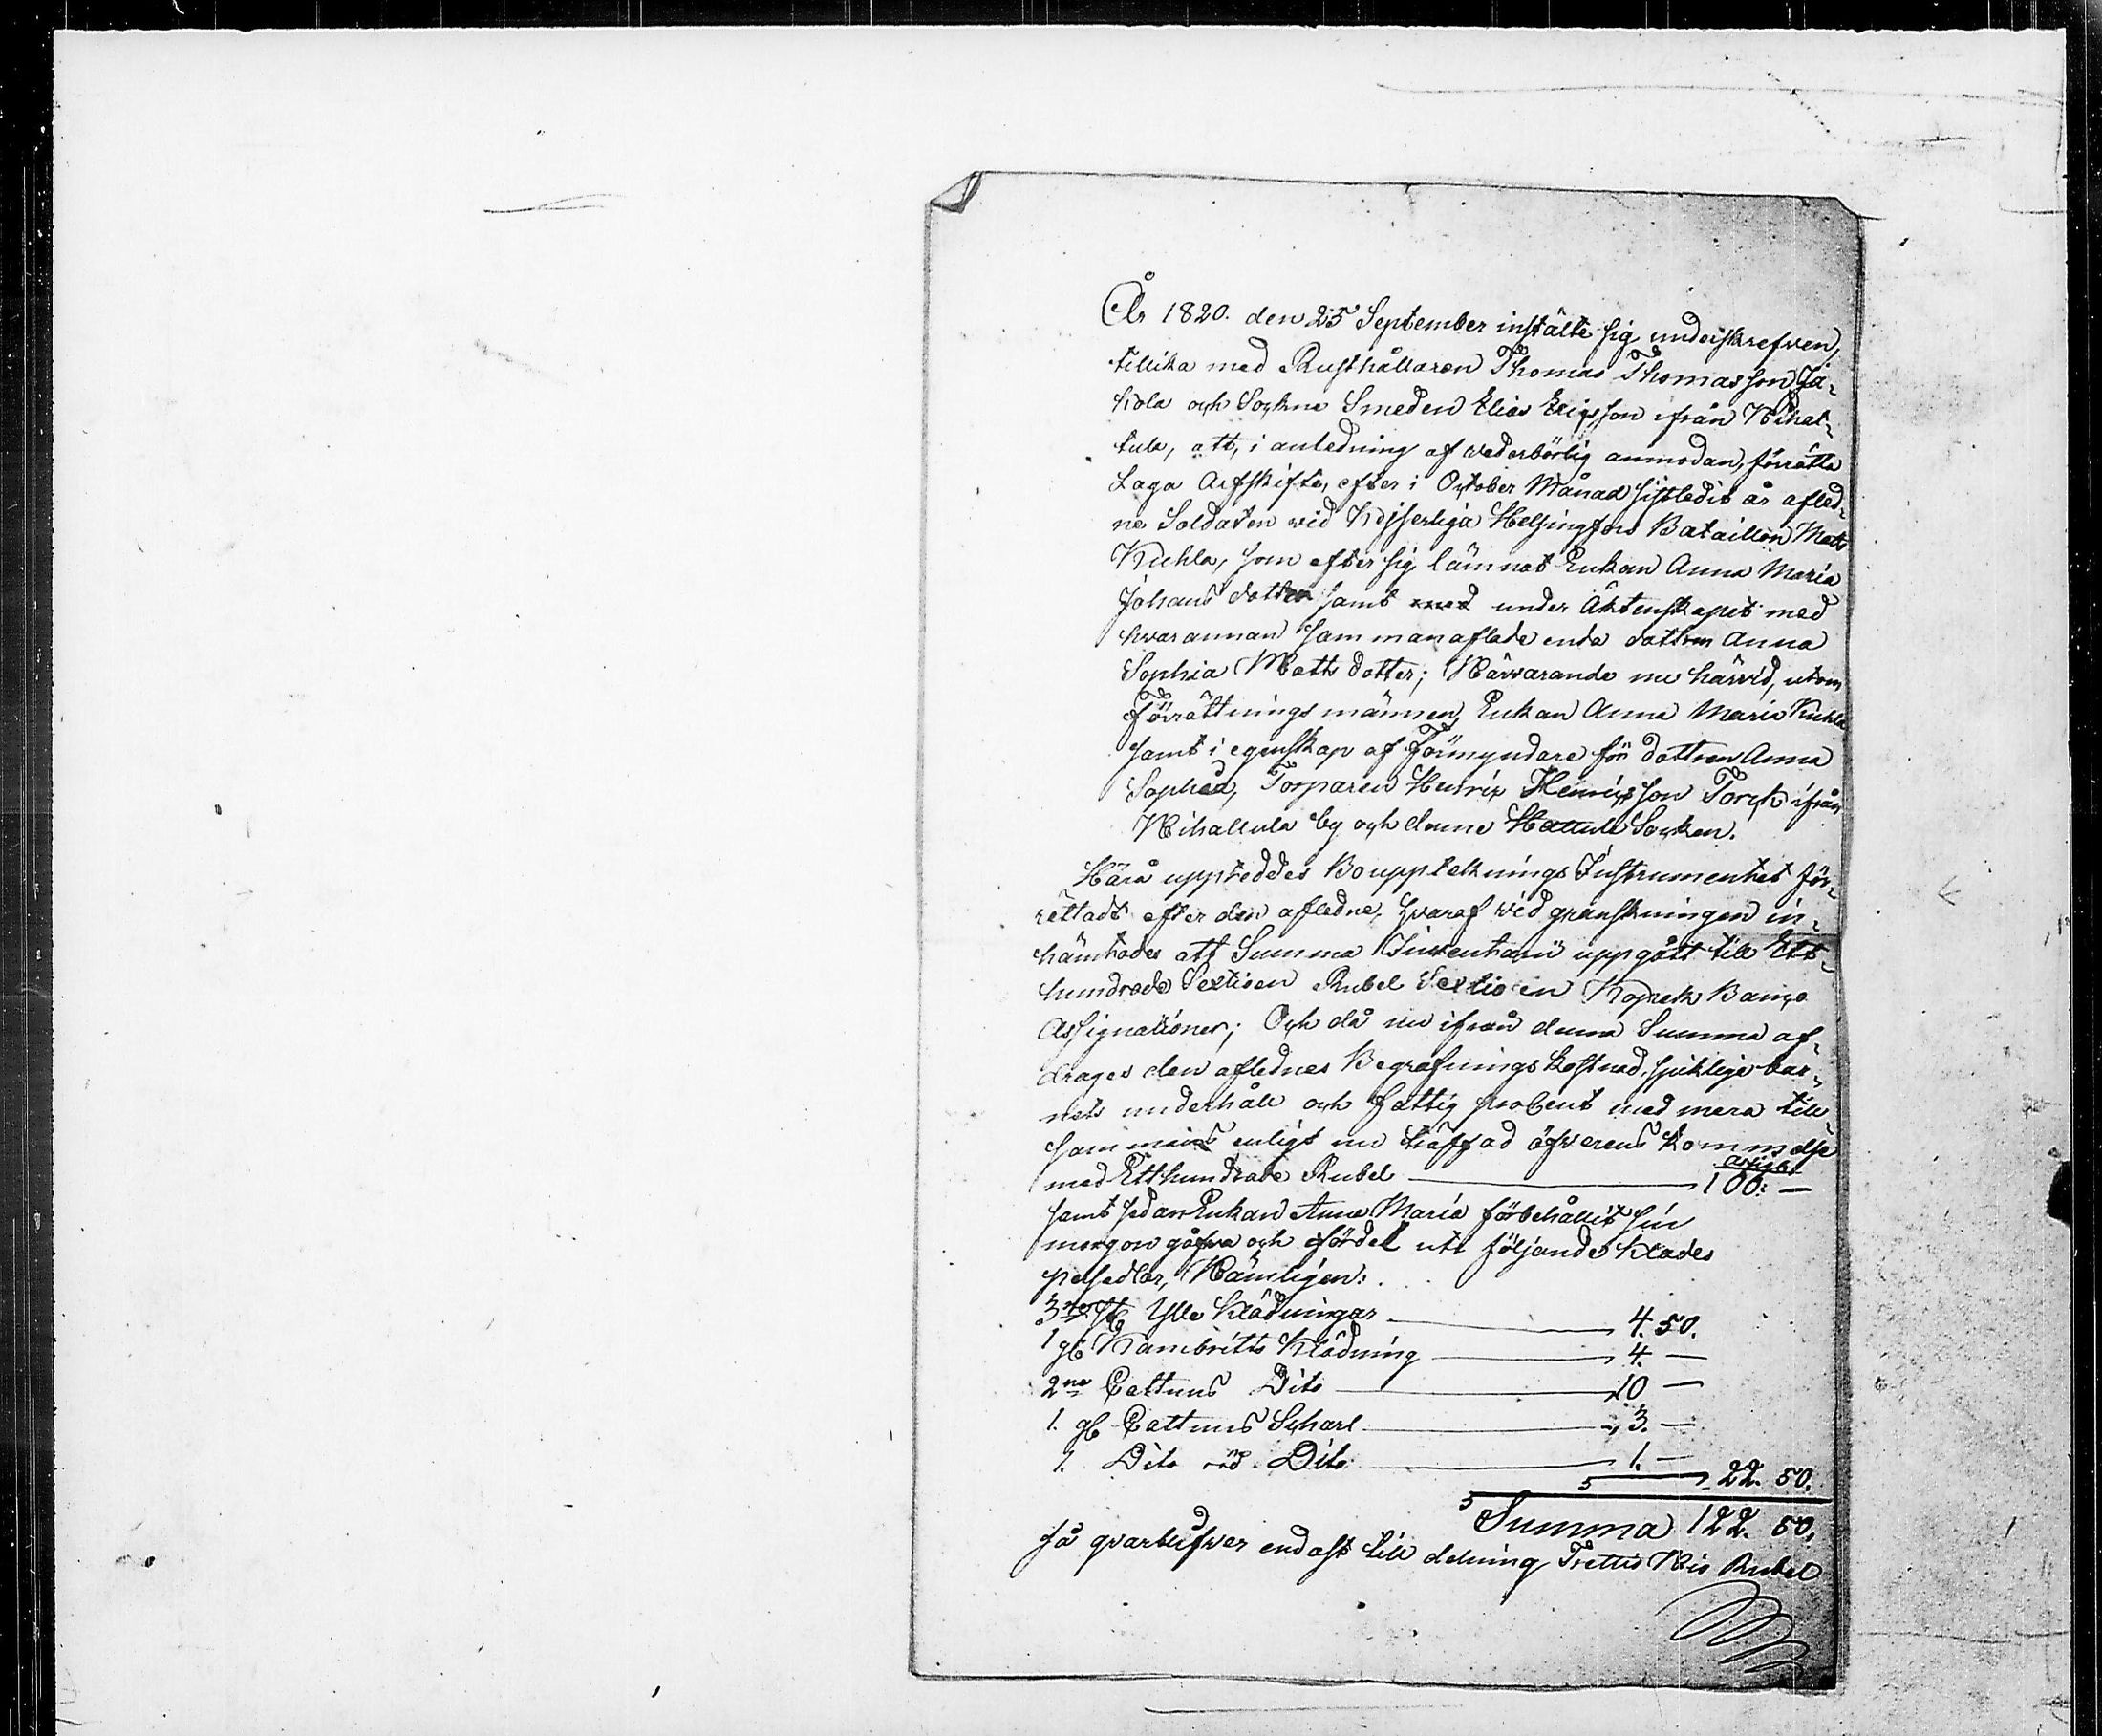 År 1820. den 25 September instälte sig underskrefven,
tillika med Rusthållaren Thomas Thomasson Ja-
kola och Sockne Smeden Elias Ericsson ifrån Nihat-
tula, att, i anledning af vederbörlig anmodan, förrätta
Laga Arfskifte, efter i October Månad sistledit år afled-
ne Soldaten vid Kejserliga Helsingfors Bataillon Matts
Kuhla, som efter sig lämnat Enkan Anna Maria
Johans dotter samt med under Äktenskapet med
hvarannan sammanaflade enda dottren Anna
Sophia Matts dotter; Närvarande nu härvid, utom
Förrättningsmännen, Enkan Anna Maria Kuhla
samt i egenskap af Förmyndare för dottren Anna
Sophia, Torparen Henric Henricsson Torck ifrån
Nihattula by och denne Hattula Socken.
Härå uppteddes Boupptecknings Instrumentet för-
rättadt efter den aflednе, hvaraf vid granskningen in-
hämtades att Summa Inventarii uppgått till Ett-
hundrade Sextioen Rubel Sextioen Kopek Banco
Assignationer; Och då nu ifrån denna Summa af-
drages den aflednes Begrafnings kostnad, sjukliga bar-
nets underhåll och fattig procent med mera till-
sammans enligt nu träffad öfverens kommelse
med Etthundrade Rubel 100: —
samt sedan Enkan Anna Maria förbehållit sin
morgongåfva och fördel uti följande klädes
persedlar, Nämligen:
3ne st Ylle Klädningar 4. 50.
1 gl Kambritts Klädning 4. —
2ne Cattuns Dito 10 —
1. gl Cattuns Scharl 3. —
1. Dito röd Dito 1. —
22. 50.
Summa 122. 50.
så qvarblifver endast till delning Trettio Nio Rubel